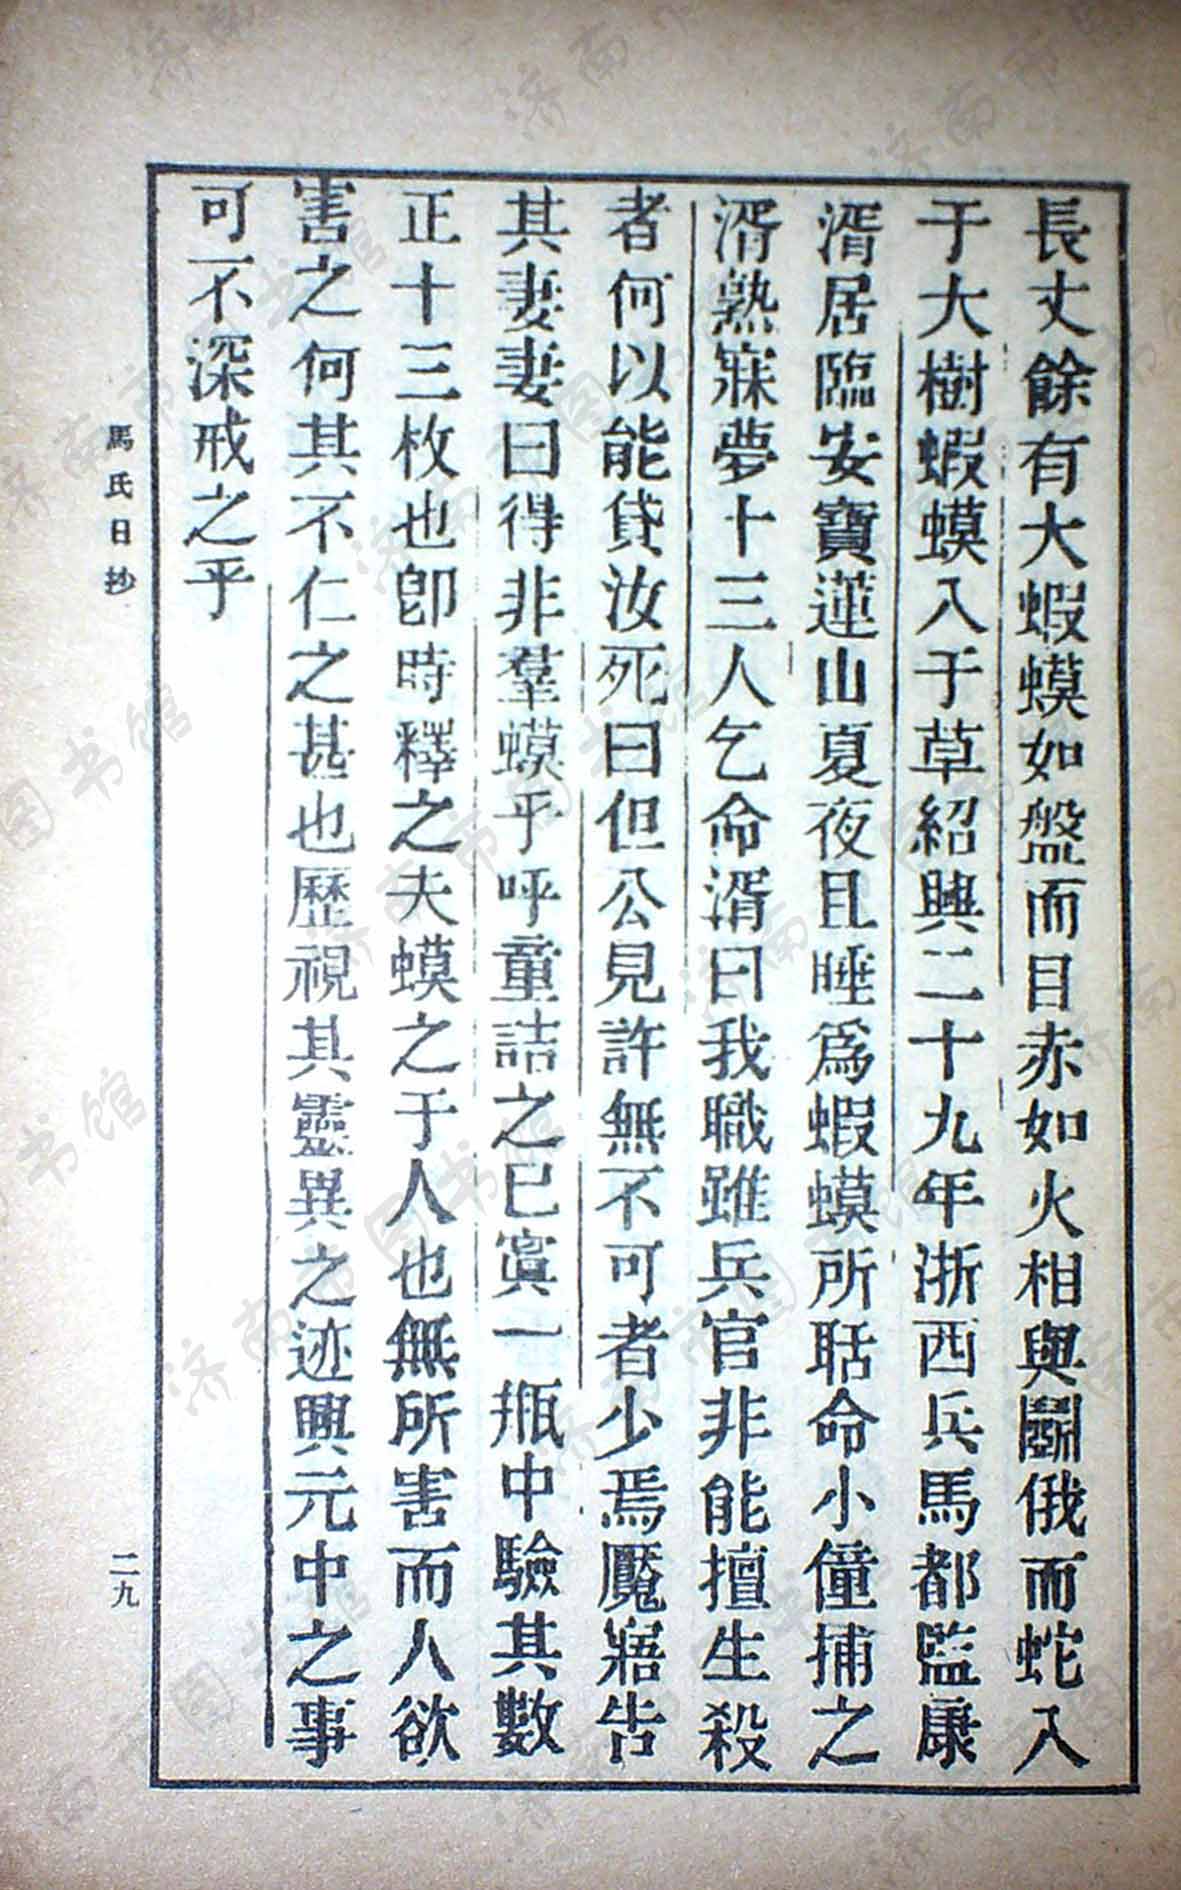 長丈餘有大蝦蟆如盤而目赤如火相與鬭俄而蛇入
于大樹蝦蟆入于草紹興二十九年浙西兵馬都監康
湑居臨安寶蓮山夏夜且睡爲蝦蟆所聒命小僮捕之
湑熟寐夢十三人乞命湑曰我職雖兵官非能擅生殺
者何以能貸汝死曰但公見許無不可者少焉魘寤告
其妻妻曰得非羣蟆乎呼童詰之已寘一瓶中驗其數
正十三枚也卽時釋之夫蟆之于人也無所害而人欲
害之何其不仁之甚也歷視其靈異之迹興元中之事
可不深戒之乎
馬氏日抄
二九
济南市图书馆